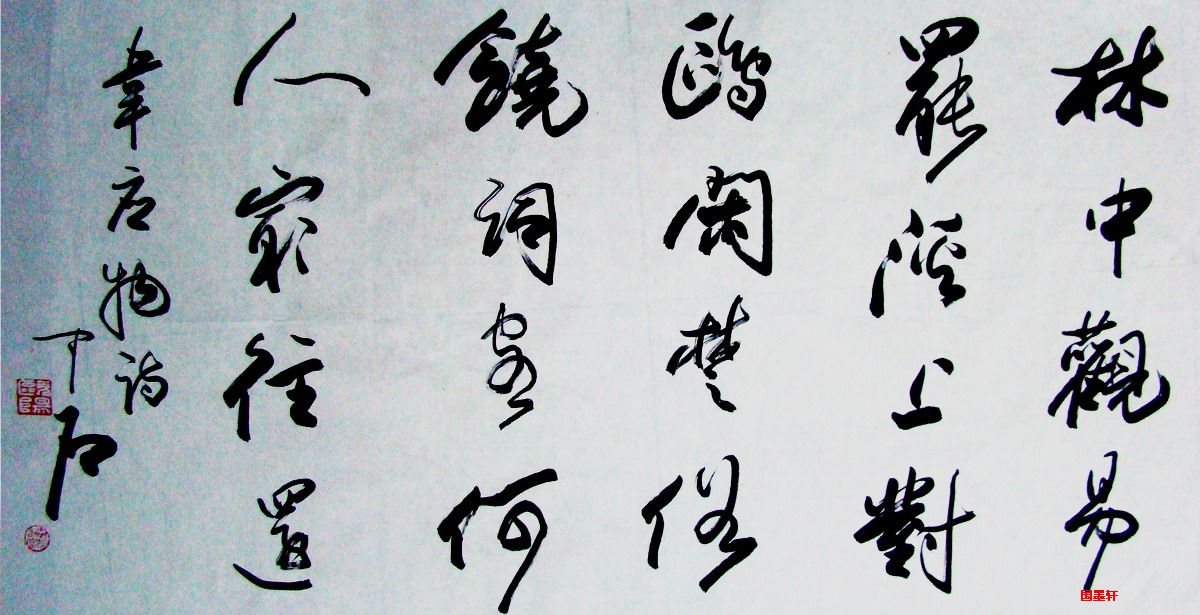 林中觀易
罷溪上對
鷗閑楚俗
饒詞客何
人最往還
韋应物詩
国墨轩